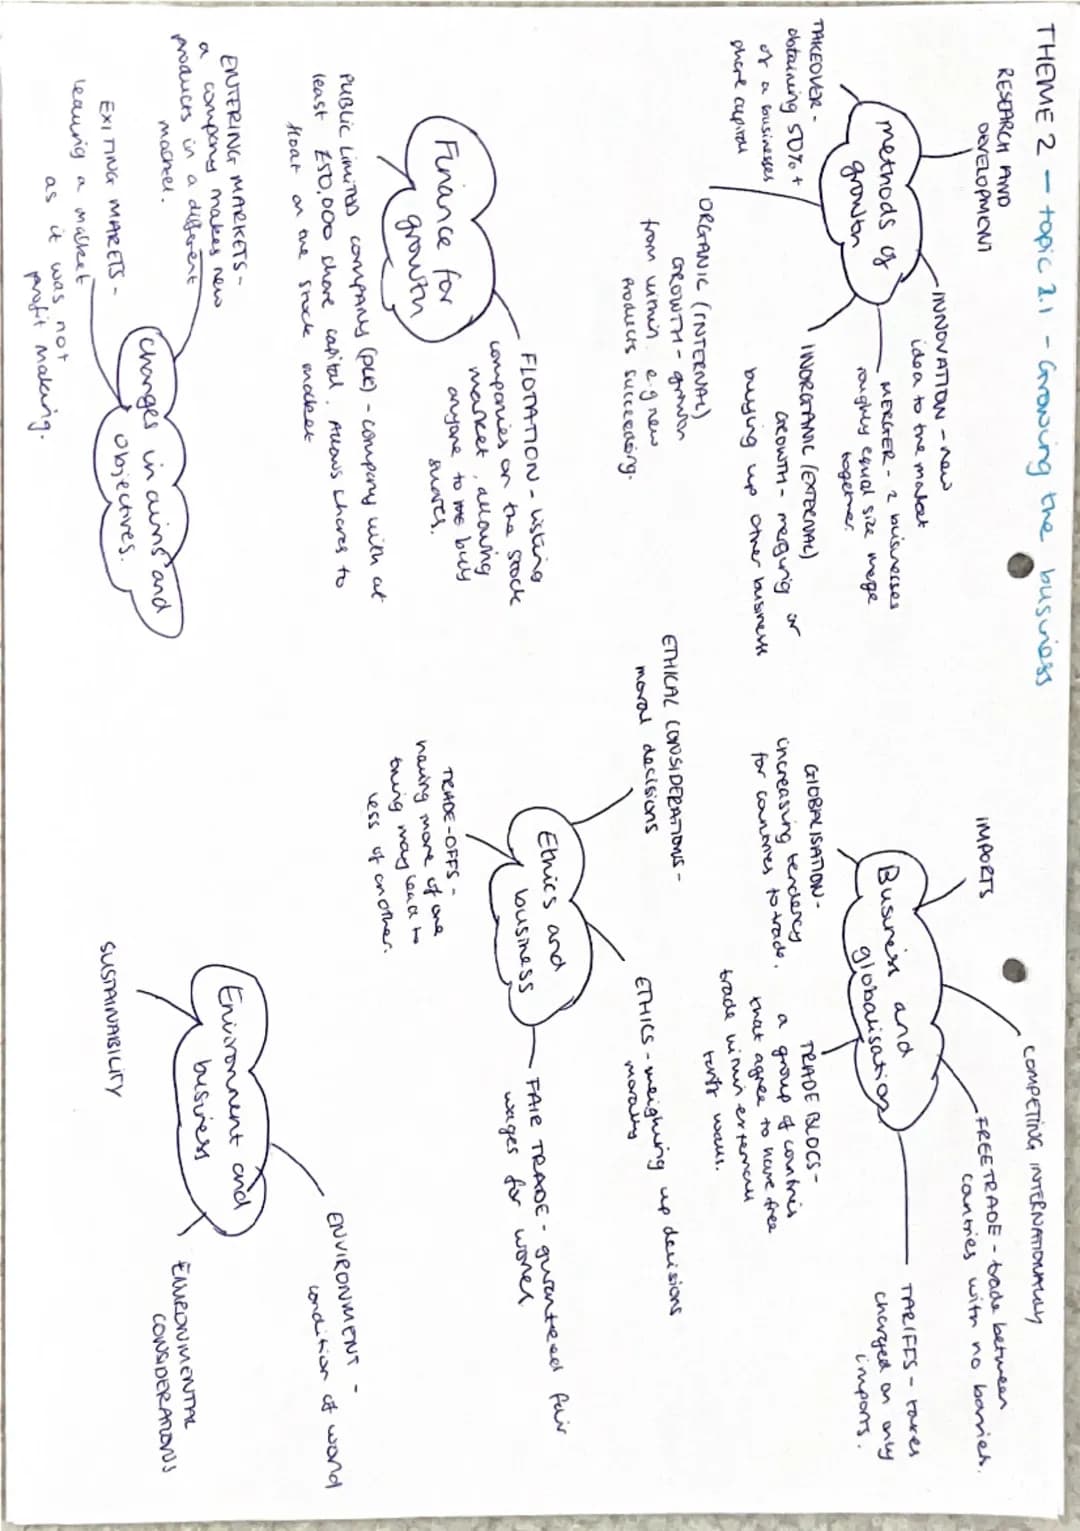 THEME 2 - topic 2.1 - Growing the business
RESEARCH AND
DEVELOPMENT
INNOVATION - new
idea to the market
MERGER - 2 businesses
roughly equal size merge
together.
methods of
growth
TAKEOVER -
obtaining 50% +
of a businesses
share capital
INORGANIC (EXTERNAL)
GROWTH - merging or
buying up other business
ORGANIC (INTERNAL)
GROWTH - growth
from within. e.g new
products succeeding.
Finance for
growth
FLOTATION - listing
companies on the stock
market, allowing
anyone to buy
shares.
PUBLIC LIMITED company (plc) - company with at
least £50,000 share capital. Allows shares to
float on the stock market
ENTERING MARKETS -
a company makes new
products in a different
market.
EXITING MARETS -
leaving a market
as it was not
profit making.
Changes in aims and
objectives.
IMPORTS
COMPETING INTERNATIONALLY
FREE TRADE - trade between
countries with no barries.
TARIFFS - taxes
charged on only
imports.
Business and
globalisation
GLOBALISATION -
increasing tendency
for countries to trade.
TRADE BLOCS -
a group of countries
that agree to have free
trade within external
tariff walls.
ETHICAL CONSIDERATIONS -
moral decisions
ETHICS - weighing up decisions
morally
Ethics and
business
FAIR TRADE - guranteed fair
wages for wores.
TRADE-OFFS -
having more of one
thing may lead to
less of another.
Environment and
business
ENVIRONMENT -
condition of world
SUSTAINABILITY
ENVIRONMENTAL
CONSIDERATIONS